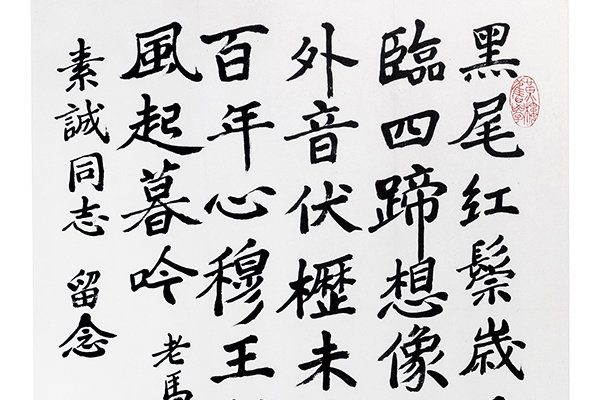 黑尾红鬃歲
臨四蹄想像
外音伏櫪未
百年心穆王
風起暮吟
老馬
素誠同志 留念